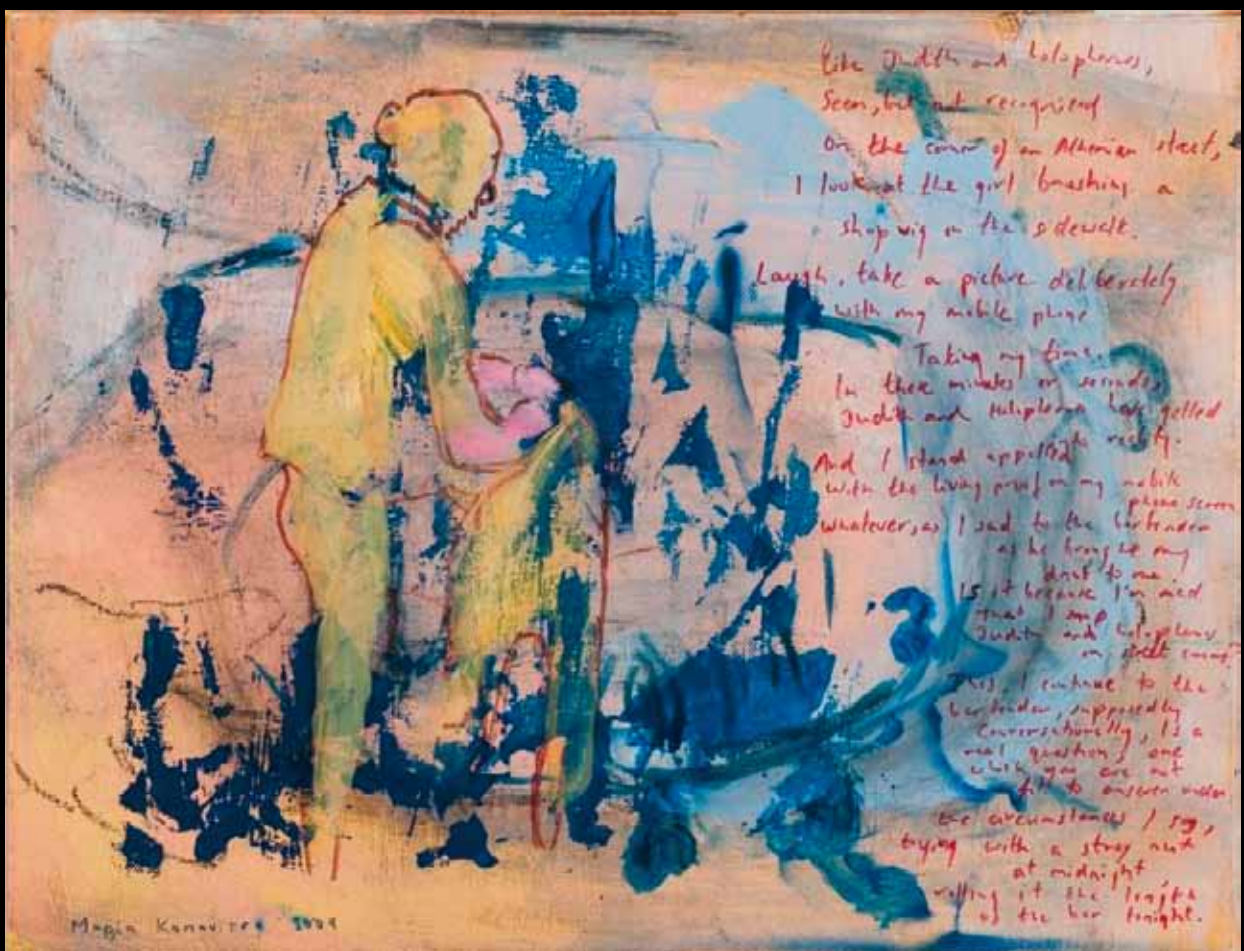 like Judith and holophernes,
Seen, but not recognised
On the corner of an Athenian street,
I look at the girl brushing a
shop wig on the sidewalk.
Laugh, take a picture deliberately
with my mobile phone
Taking my time.
In these minutes or seconds,
Judith and Holophernes have gelled
reality.
And I stand appalled
with the living proof on my mobile
phone screen
whatever, as I said to the bartender
as he brought me my
drink to me.
Is it because I'm mad
that I
Judith and holophernes
on street
This, I continue to the
bartender, supposedly
conversationally, is a
real question, one
which you are not
fit to answer under
the circumstances I say,
toying with a stray nut
at midnight,
rolling it the length
of the bar tonight.
Μαρία